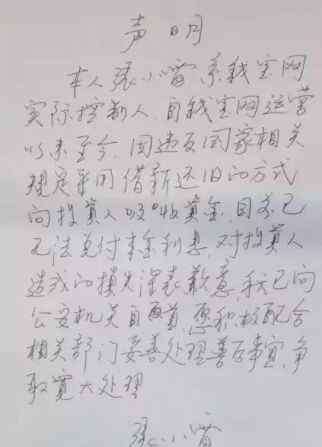 声明
本人张小雷系钱宝网
实际控制人，自钱宝网运营
以来至今，因违反国家相关
规定采用借新还旧的方式
向投资人吸收资金，目前已
无法兑付本金利息，对投资人
造成的损失深表歉意，我已向
公安机关自首，愿积极配合
相关部门妥善处理善后事宜，争
取宽大处理
张小雷